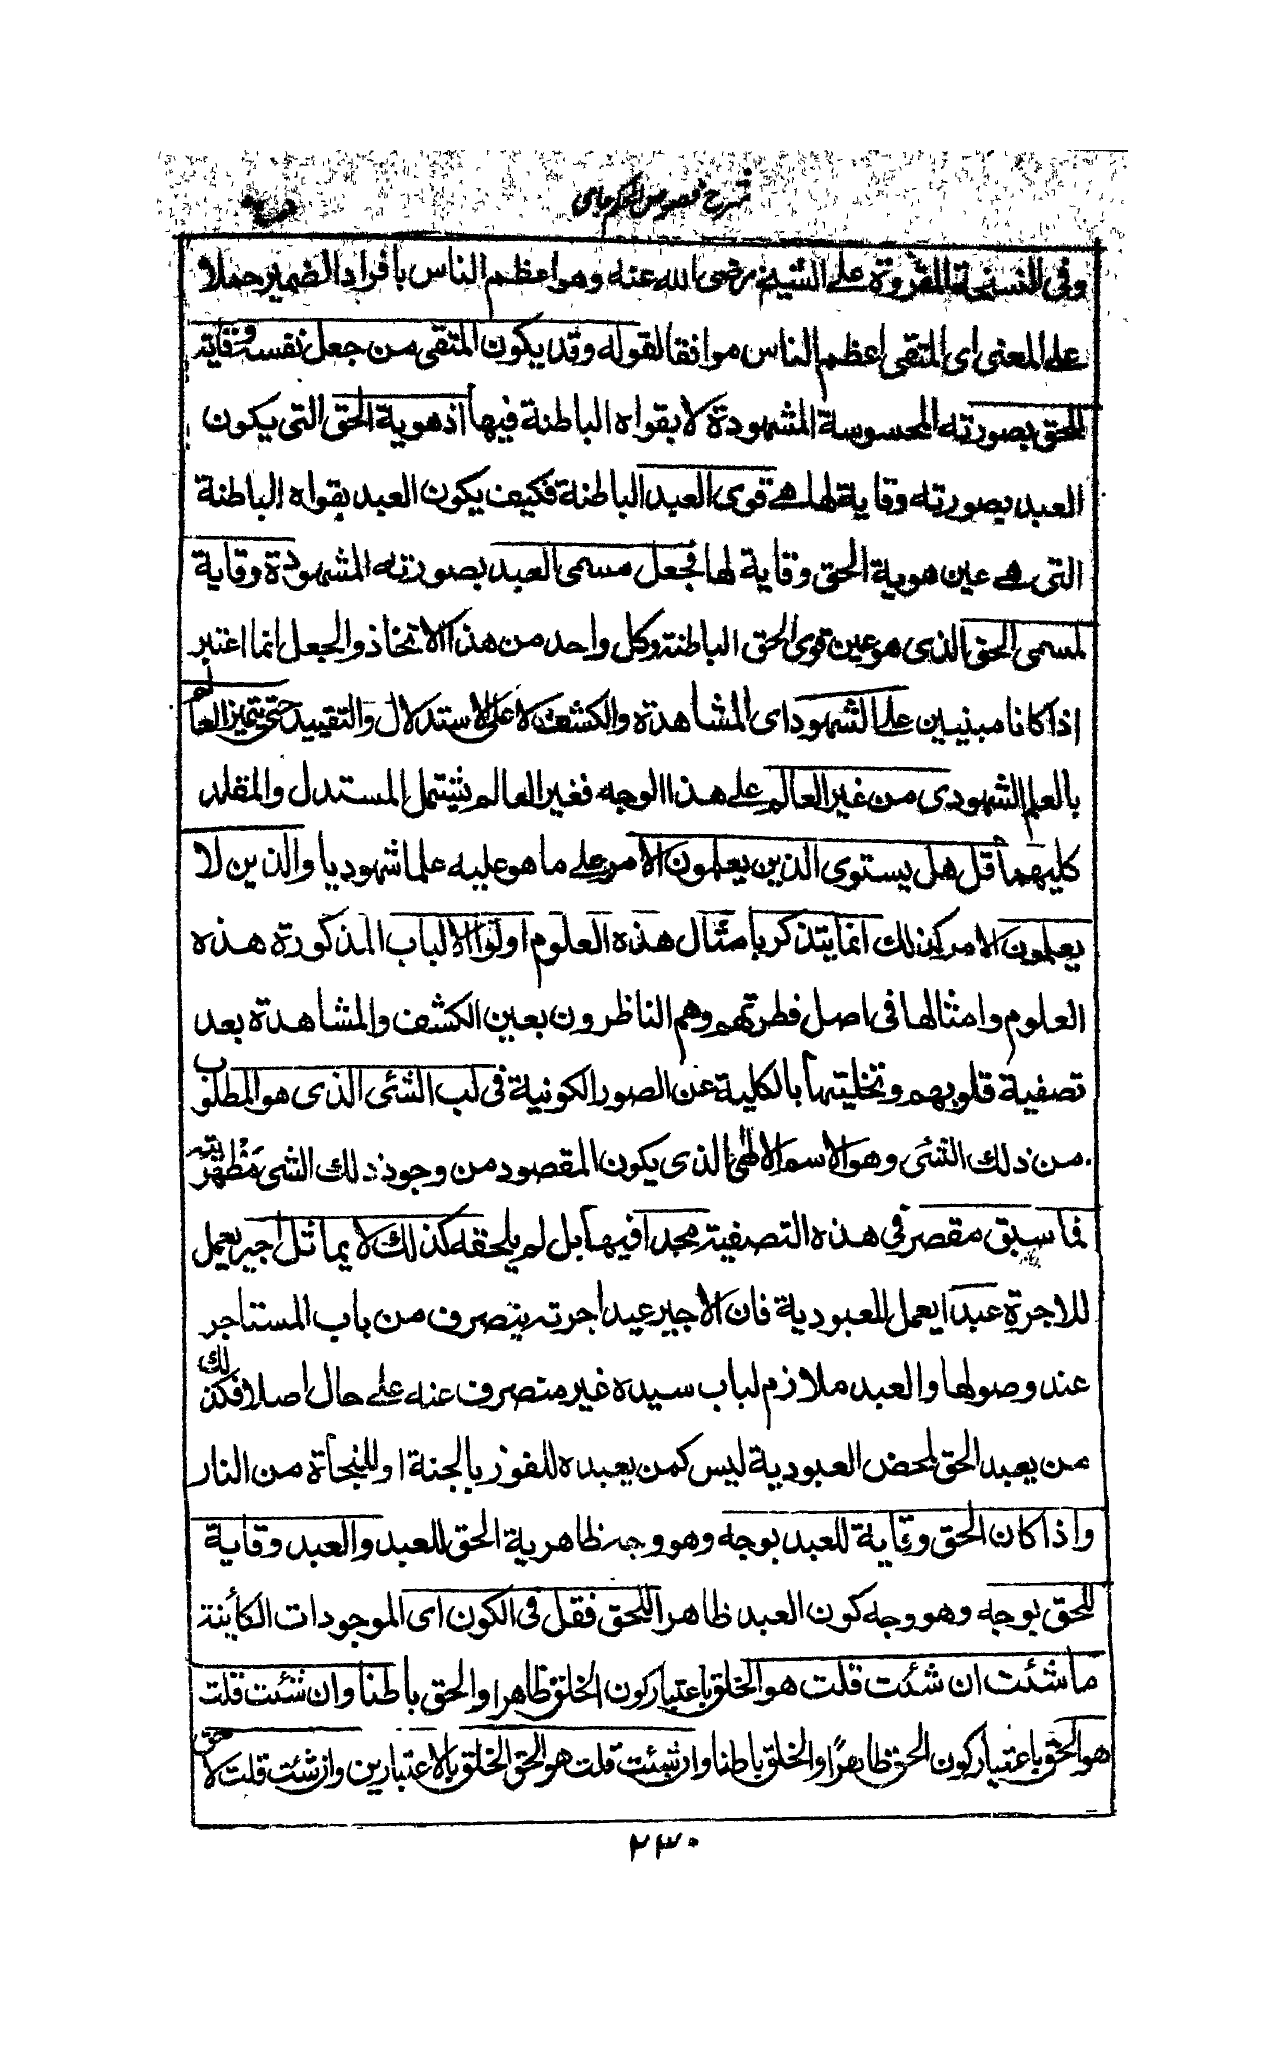 شرح فصوص الحكم جامی
وفی النسخة المقروة علی الشیخ رضی الله عنه وهو اعظم الناس بافراد الضمیر حملا
علی المعنی ای المتقی اعظم الناس موافقا لقوله وقد یکون المتقی من جعل نفسه وقایة
للحق بصورته المحسوسة المشهودة لا بقواه الباطنة فیها اذ هویة الحق التی یکون
العبد بصورته وقایة لها هی قوی العبد الباطنة فکیف یکون العبد بقواه الباطنة
التی هی عین هویة الحق وقایة لها فجعل مسمی العبد بصورته المشهودة وقایة
لمسمی الحق الذی هو عین قوی الحق الباطنة وکل واحد من هذا الاتخاذ والجعل انما اعتبر
اذا کانا مبنیین علی الشهود ای المشاهدة والکشف لا علی الاستدلال والتقیید حتی یتمیز العالم
بالعلم الشهودی من غیر العالم علی هذا الوجه فغیر العالم یشتمل المستدل والمقلد
کلیهما قل هل یستوی الذین یعلمون الامر علی ما هو علیه علما شهودیا والذین لا
یعلمون الامر کذلك انما یتذکر بامثال هذه العلوم اولوا الالباب المذکورة هذه
العلوم وامثالها فی اصل فطرتهم وهم الناظرون بعین الکشف والمشاهدة بعد
تصفیة قلوبهم وتخلیتها بالکلیة عن الصور الکونیة فی لب الشئ الذی هو المطلوب
من ذلك الشئ وهو الاسم الالهی الذی یکون المقصود من وجود ذلك الشی مظهریته
فما سبق مقصر فی هذه التصفیة مجدا فیها بل لم یلحقه کذلك لا یماثل اجیر یعمل
للاجرة عبدا یعمل للعبودیة فان الاجیر عبد اجرته ینصرف من باب المستاجر
عند وصولها والعبد ملازم لباب سیده غیر منصرف عنه علی حال اصلا فکذلك
من یعبد الحق لمحض العبودیة لیس کمن یعبده للفوز بالجنة او للنجأة من النار
واذا کان الحق وقایة للعبد بوجه وهو وجه ظاهریة الحق للعبد والعبد وقایة
للحق بوجه وهو وجه کون العبد ظاهرا للحق فقل فی الکون ای الموجودات الکأینة
ما شئت ان شئت قلت هو الخلق باعتبار کون الخلق ظاهرا والحق باطنا وان شئت قلت
هو الحق باعتبار کون الحق ظاهرًا والخلق باطنا وان شئت قلت هو الحق الخلق بالاعتبارین وان شئت قلت لا حق
۲۳۰